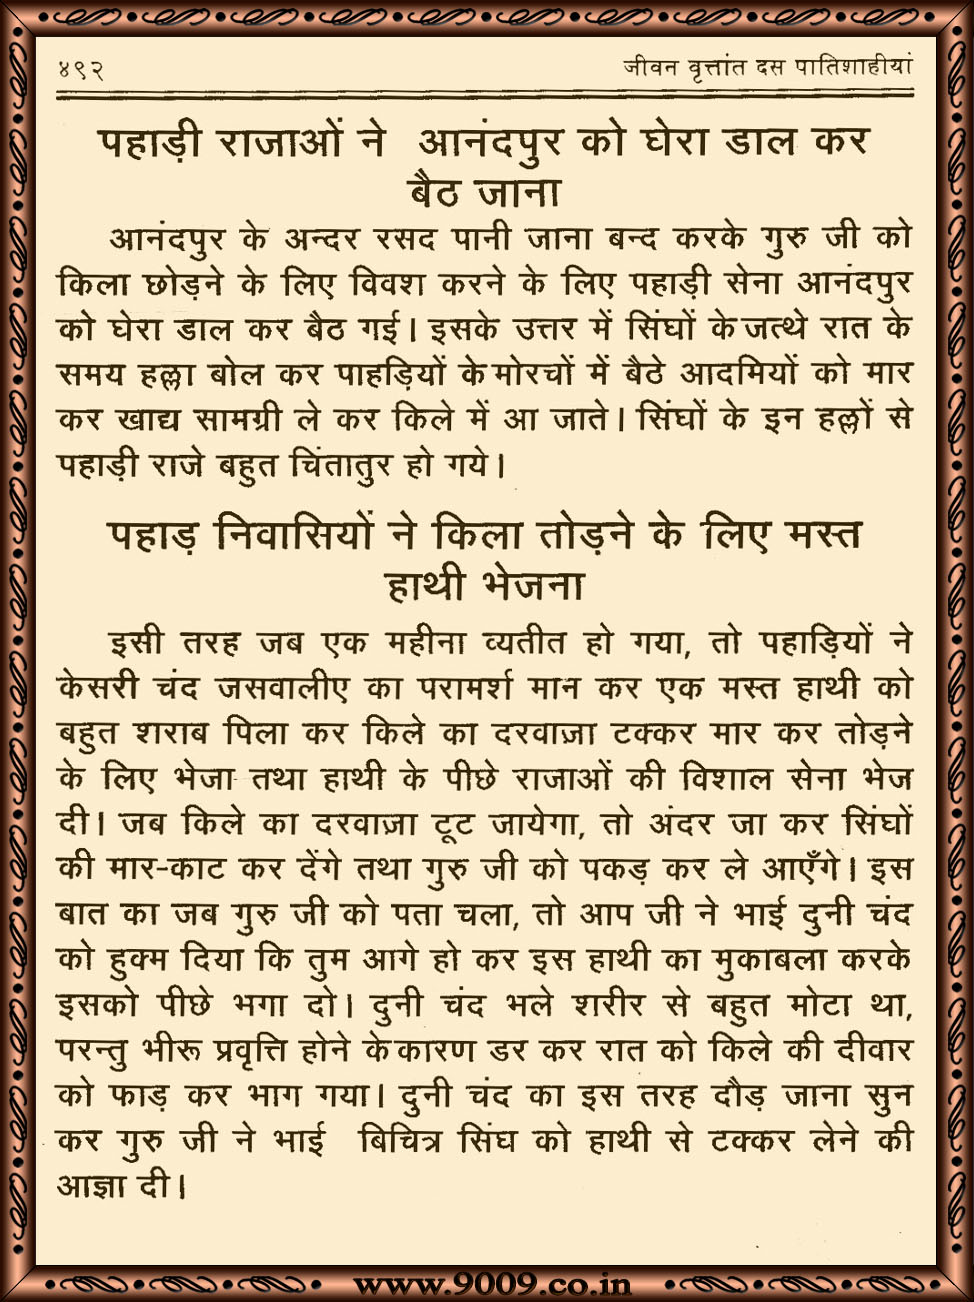 ४९२
जीवन वृत्तांत दस पातिशाहीयां
पहाड़ी राजाओं ने आनंदपुर को घेरा डाल कर
बैठ जाना
आनंदपुर के अन्दर रसद पानी जाना बन्द करके गुरु जी को
किला छोड़ने के लिए विवश करने के लिए पहाड़ी सेना आनंदपुर
को घेरा डाल कर बैठ गई। इसके उत्तर में सिंघों के जत्थे रात के
समय हल्ला बोल कर पाहड़ियों के मोरचों में बैठे आदमियों को मार
कर खाद्य सामग्री ले कर किले में आ जाते। सिंघों के इन हल्लों से
पहाड़ी राजे बहुत चिंतातुर हो गये।
पहाड़ निवासियों ने किला तोड़ने के लिए मस्त
हाथी भेजना
इसी तरह जब एक महीना व्यतीत हो गया, तो पहाड़ियों ने
केसरी चंद जसवालीए का परामर्श मान कर एक मस्त हाथी को
बहुत शराब पिला कर किले का दरवाज़ा टक्कर मार कर तोड़ने
के लिए भेजा तथा हाथी के पीछे राजाओं की विशाल सेना भेज
दी। जब किले का दरवाज़ा टूट जायेगा, तो अंदर जा कर सिंघों
की मार-काट कर देंगे तथा गुरु जी को पकड़ कर ले आएँगे। इस
बात का जब गुरु जी को पता चला, तो आप जी ने भाई दुनी चंद
को हुक्म दिया कि तुम आगे हो कर इस हाथी का मुकाबला करके
इसको पीछे भगा दो। दुनी चंद भले शरीर से बहुत मोटा था,
परन्तु भीरू प्रवृत्ति होने के कारण डर कर रात को किले की दीवार
को फाड़ कर भाग गया। दुनी चंद का इस तरह दौड़ जाना सुन
कर गुरु जी ने भाई बिचित्र सिंघ को हाथी से टक्कर लेने की
आज्ञा दी।
www.9009.co.in